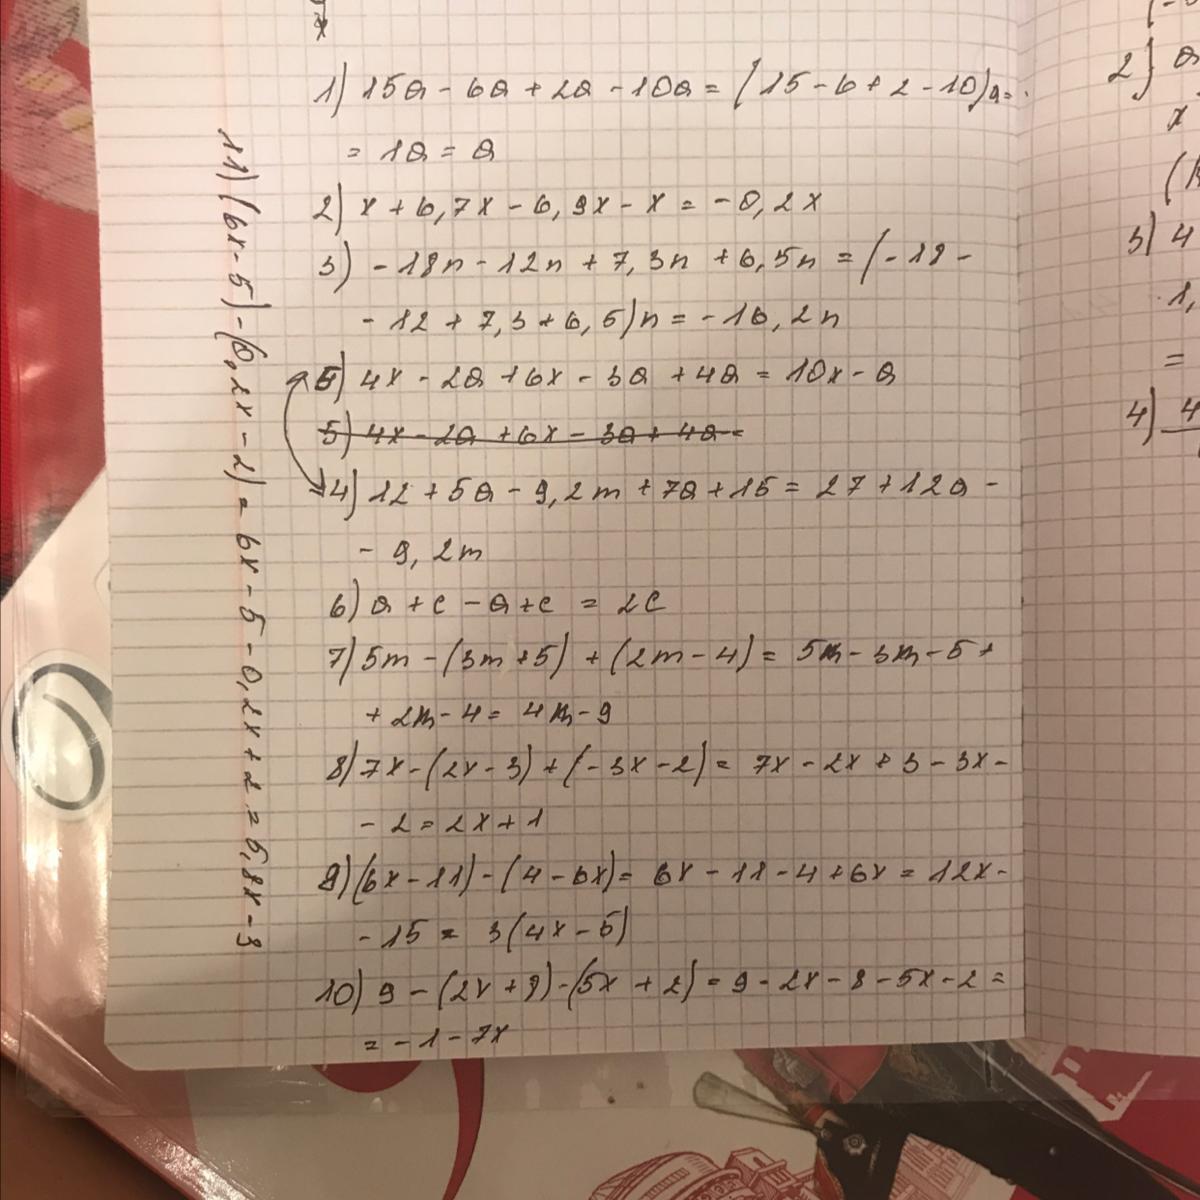 1) 15a - 6a + 2a - 10a = (15 - 6 + 2 - 10)a =
= 1a = a
2) x + 6,7x - 6,9x - x = -0,2x
3) -18n - 12n + 7,3n + 6,5n = (-18 -
- 12 + 7,3 + 6,5)n = -16,2n
5) 4x - 2a + 6x - 3a + 4a = 10x - a
5) 4x - 2a + 6x - 3a + 4a =
4) 12 + 5a - 9,2m + 7a + 15 = 27 + 12a -
- 9,2m
6) a + c - a + c = 2c
7) 5m - (3m + 5) + (2m - 4) = 5m - 3m - 5 +
+ 2m - 4 = 4m - 9
8) 7x - (2x - 3) + (-3x - 2) = 7x - 2x + 3 - 3x -
- 2 = 2x + 1
9) (6x - 11) - (4 - 6x) = 6x - 11 - 4 + 6x = 12x -
- 15 = 3(4x - 5)
10) 9 - (2x + 8) - (5x + 2) = 9 - 2x - 8 - 5x - 2 =
= -1 - 7x
11) (6x - 5) - (0,2x - 2) = 6x - 5 - 0,2x + 2 = 5,8x - 3
2)
x
3) 4
1,
=
4) 4